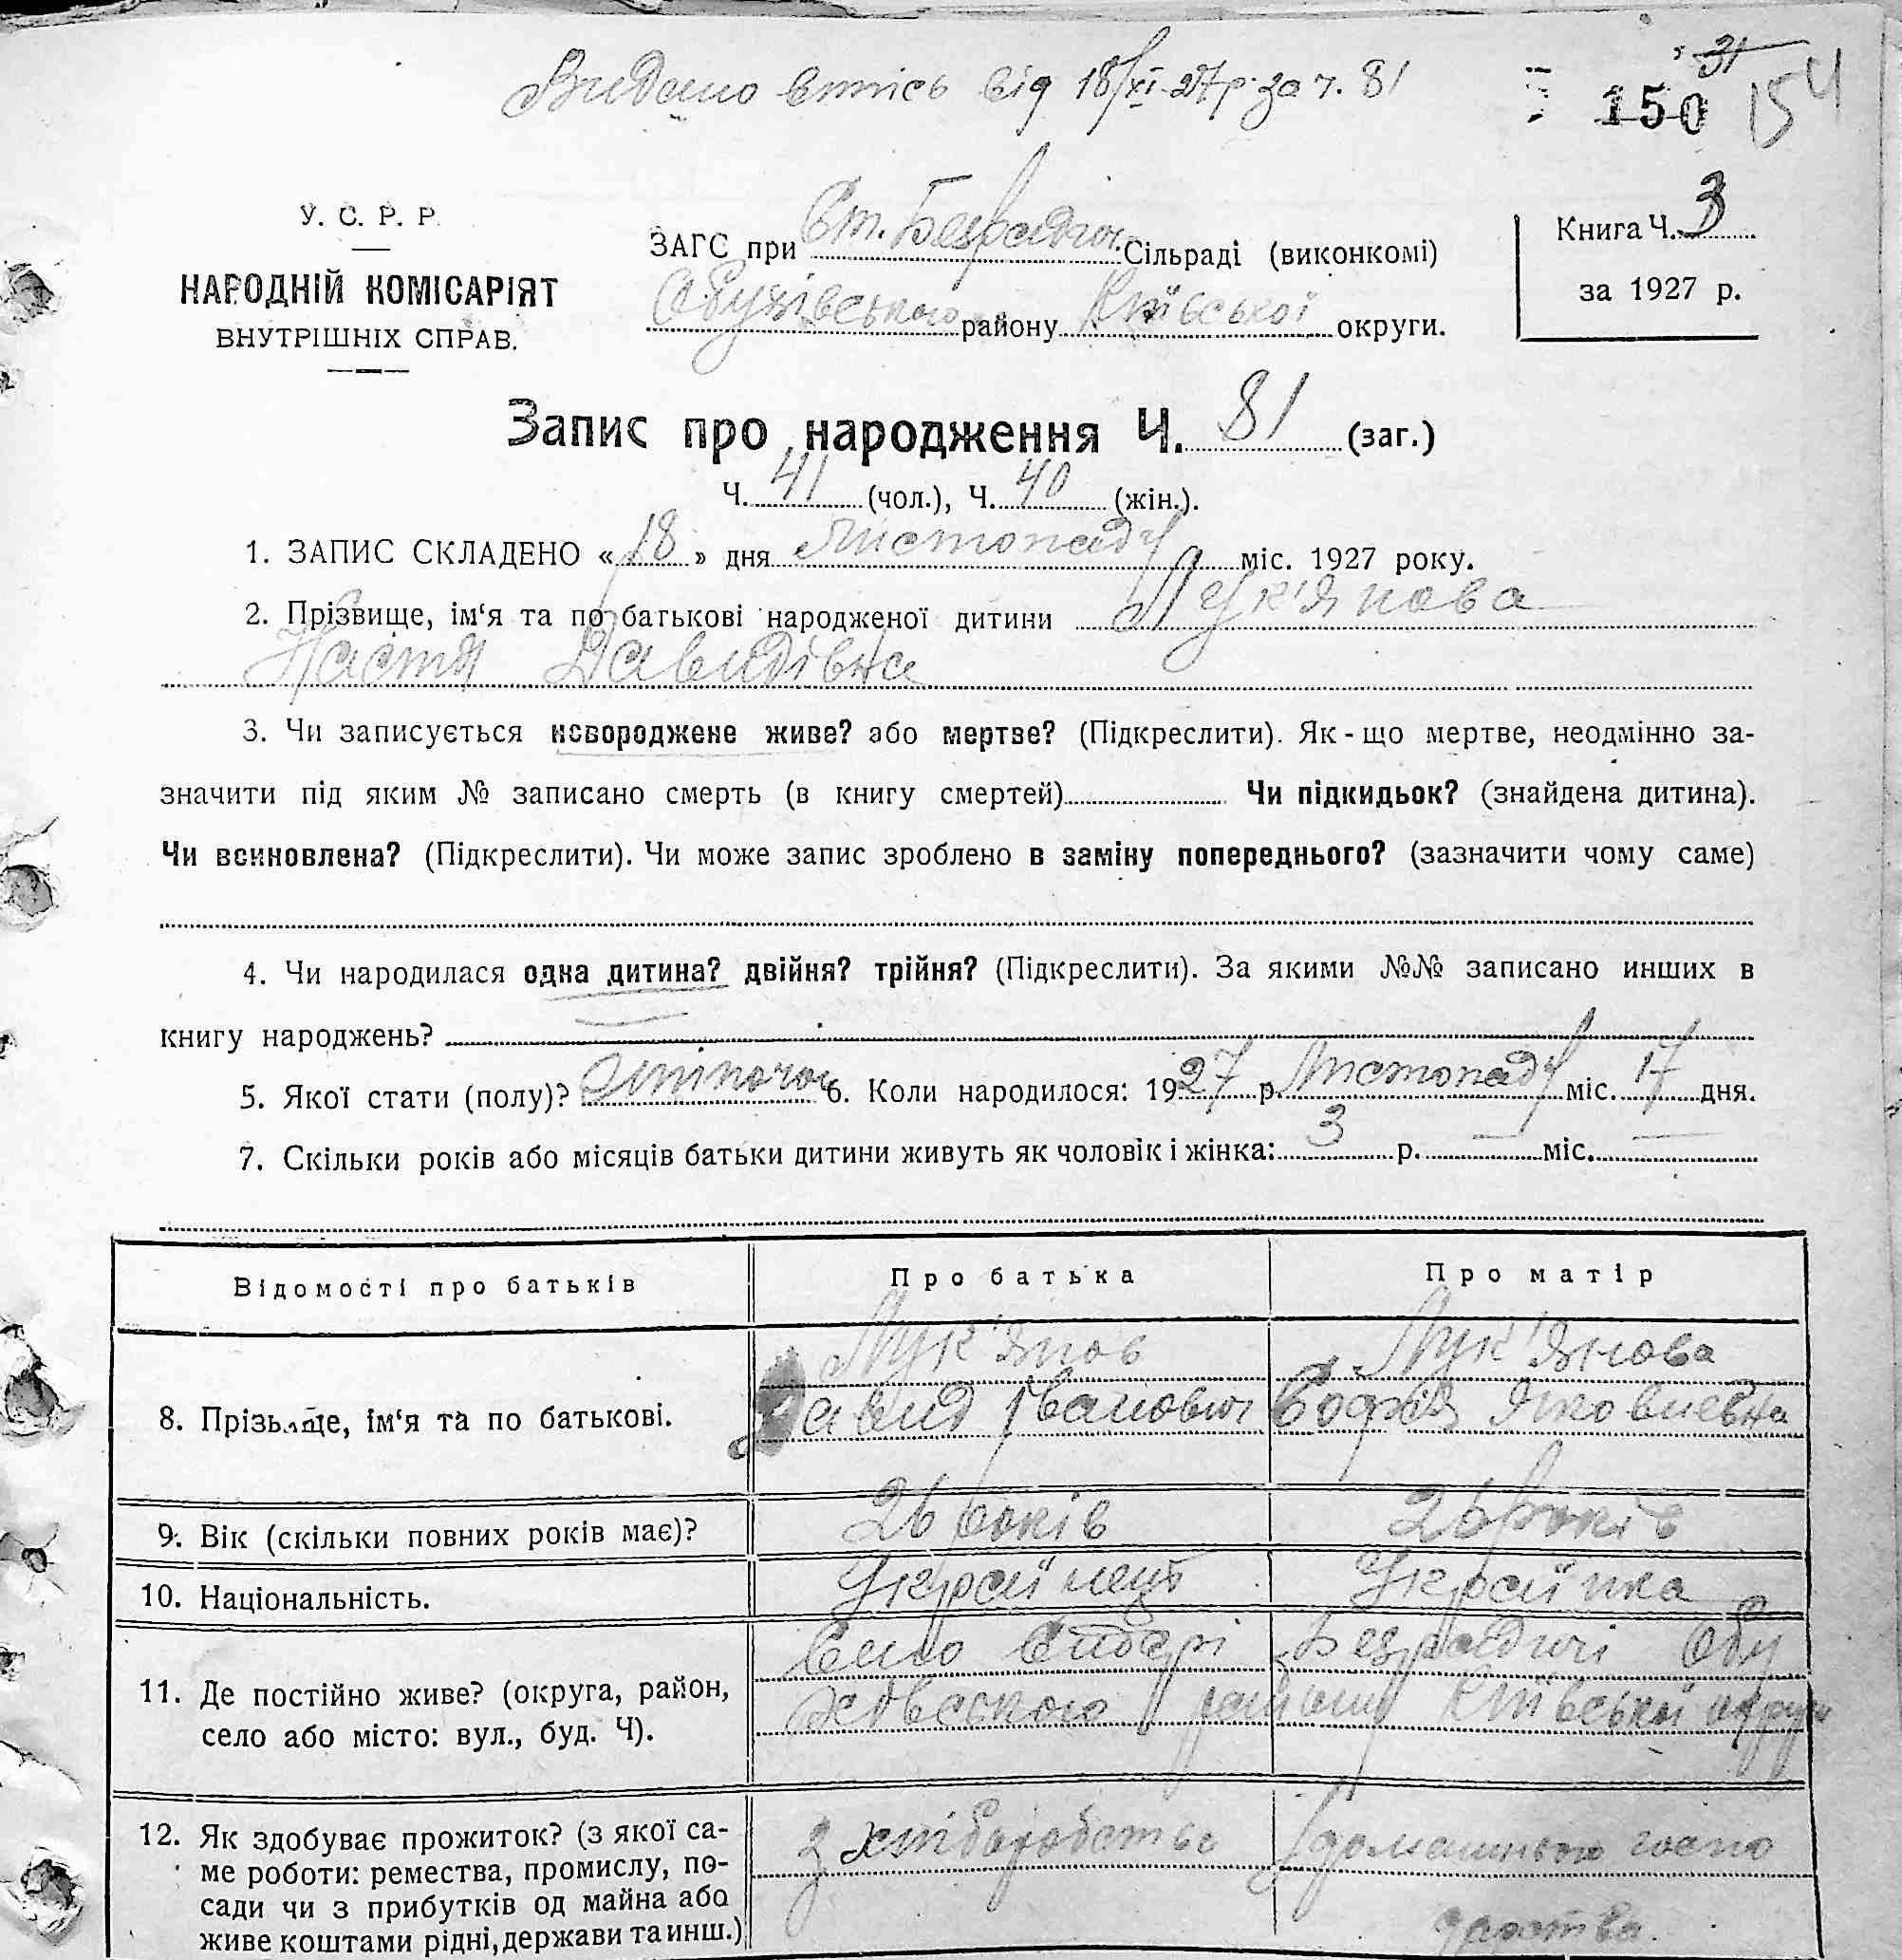 Видано впись від 18/XI-27р за ч. 81
31
150 154
У. С. Р. Р.
НАРОДНІЙ КОМІСАРІЯТ
ВНУТРІШНІХ СПРАВ.
ЗАГС при Ст. Безрадич. Сільраді (виконкомі)
Обухівського району Київської округи.
Книга Ч. 3
за 1927 р.
Запис про народження Ч. 81 (заг.)
Ч. 41 (чол.), Ч. 40 (жін.).
1. ЗАПИС СКЛАДЕНО «18» дня Листопаду міс. 1927 року.
2. Прізвище, ім‘я та по батькові народженої дитини Лук'янова
Настя Давидівна
3. Чи записується новороджене живе? або мертве? (Підкреслити). Як-що мертве, неодмінно за-
значити під яким № записано смерть (в книгу смертей) Чи підкидьок? (знайдена дитина).
Чи всиновлена? (Підкреслити). Чи може запис зроблено в заміну попереднього? (зазначити чому саме)
4. Чи народилася одна дитина? двійня? трійня? (Підкреслити). За якими №№ записано инших в
книгу народжень?
5. Якої стати (полу)? жіночої 6. Коли народилося: 1927 р. Листопаду міс. 17 дня.
7. Скільки років або місяців батьки дитини живуть як чоловік і жінка: 3 р. — міс. —
Відомості про батьків Про батька Про матір
8. Прізвище, ім‘я та по батькові. Лук'янов Лук'янова
Давид Іванович Софія Яковлевна
9. Вік (скільки повних років має)? 26 років 26 років
10. Національність. Українець Українка
11. Де постійно живе? (округа, район,
село або місто: вул., буд. Ч).
Село Старі Безрадичі Обу
хівського району Київської округи
12. Як здобуває прожиток? (з якої са-
ме роботи: ремества, промислу, по-
сади чи з прибутків од майна або
живе коштами рідні, держави та инш.)
з хліборобства з домашнього госпо
дарства.